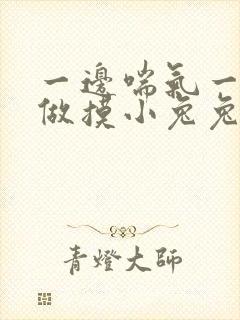 一邊喘氣一
做摸小兔兔
青燈大師